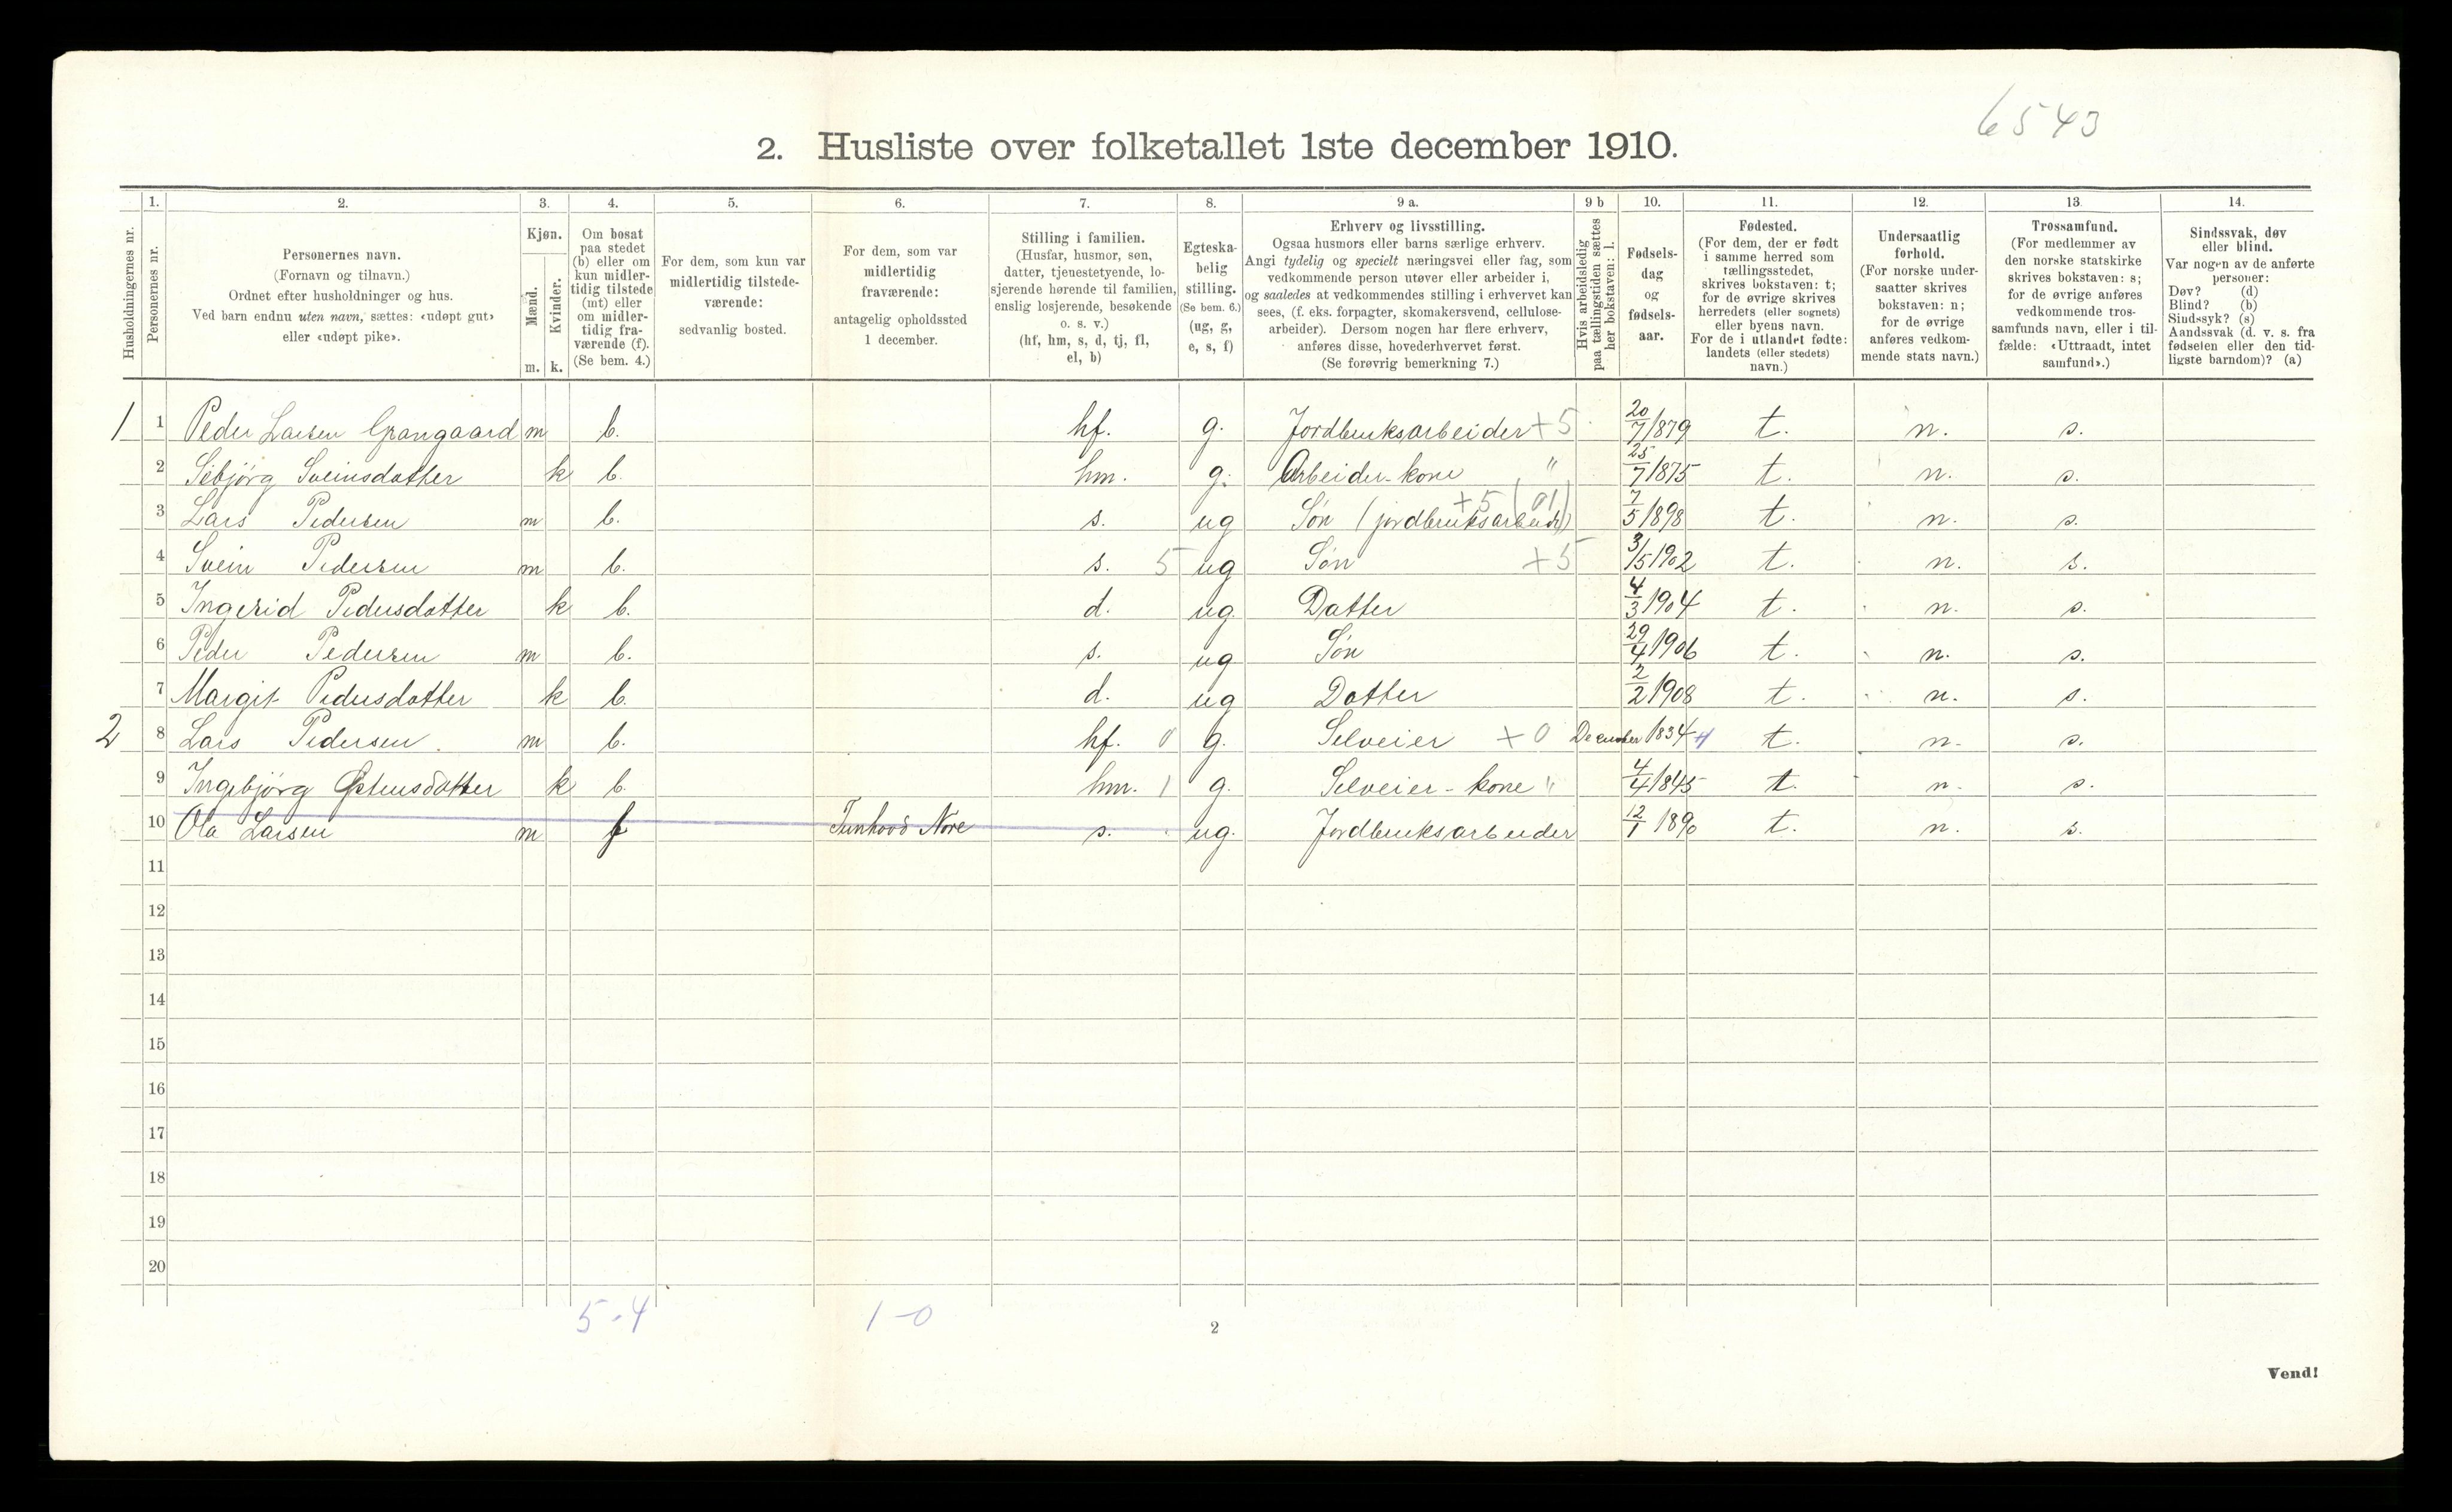 6543
2. Husliste over folketallet 1ste december 1910.
Husholdningernes nr.
1. Personernes nr.
2. Personernes navn. (Fornavn og tilnavn.) Ordnet efter husholdninger og hus. Ved barn endnu uten navn, sættes: «udøpt gut» eller «udøpt pike».
3. Kjøn. Mænd. m. Kvinder. k.
4. Om bosat paa stedet (b) eller om kun midlertidig tilstede (mt) eller om midlertidig fraværende (f). (Se bem. 4.)
5. For dem, som kun var midlertidig tilstedeværende: sedvanlig bosted.
6. For dem, som var midlertidig fraværende: antagelig opholdssted 1 december.
7. Stilling i familien. (Husfar, husmor, søn, datter, tjenestetyende, losjerende hørende til familien, enslig losjerende, besøkende o. s. v.) (hf, hm, s, d, tj, fl, el, b)
8. Egteskabelig stilling. (Se bem. 6.) (ug, g, e, s, f)
9 a. Erhverv og livsstilling. Ogsaa husmors eller barns særlige erhverv. Angi tydelig og specielt næringsvei eller fag, som vedkommende person utøver eller arbeider i, og saaledes at vedkommendes stilling i erhvervet kan sees, (f. eks. forpagter, skomakersvend, cellulose-arbeider). Dersom nogen har flere erhverv, anføres disse, hovederhvervet først. (Se forøvrig bemerkning 7.)
9 b Hvis arbeidsledig paa tællingstiden sættes her bokstaven: l.
10. Fødselsdag og fødselsaar.
11. Fødested. (For dem, der er født i samme herred som tællingsstedet, skrives bokstaven: t; for de øvrige skrives herredets (eller sognets) eller byens navn. For de i utlandet fødte: landets (eller stedets) navn.)
12. Undersaatlig forhold. (For norske undersaatter skrives bokstaven: n; for de øvrige anføres vedkommende stats navn.)
13. Trossamfund. (For medlemmer av den norske statskirke skrives bokstaven: s; for de øvrige anføres vedkommende trossamfunds navn, eller i tilfælde: «Uttraadt, intet samfund».)
14. Sindssvak, døv eller blind. Var nogen av de anførte personer: Døv? (d) Blind? (b) Sindssyk? (s) Aandssvak (d. v. s. fra fødselen eller den tidligste barndom)? (a)
1 1 Peder Larsen Grangaard m b. hf. g. Jordbruksarbeider +5 20/7 1879 t. n. s.
2 Sebjörg Sveinsdatter k b. hm. g. Arbeider-kone " 25/7 1875 t. n. s.
3 Lars Pedersen m b. s. ug Sön (jordbruksarbeide) +5 (01) 7/5 1898 t. n. s.
4 Svein Pedersen m b. s. 5 ug Sön +5 3/5 1902 t. n. s.
5 Ingerid Pedersdatter k b. d. ug. Datter 4/3 1904 t. n. s.
6 Peder Pedersen m b. s. ug Sön 29/4 1906 t. n. s.
7 Margit Pedersdatter k b. d. ug Datter 2/2 1908 t. n. s.
2 8 Lars Pedersen. m b. hf. 0 g. Selveier +0 December 1834 t. n. s.
9 Ingebjörg k b. hm. 1 g. Selveier-kone " 4/4 1845 t. n. s.
10 Ola Larsen m f Tunhovd Nore s. ug. Jordbruksarbeider 12/1 1890 t. n. s.
11
12
13
14
15
16
17
18
19
20
5-4 1-0
2
Vend!